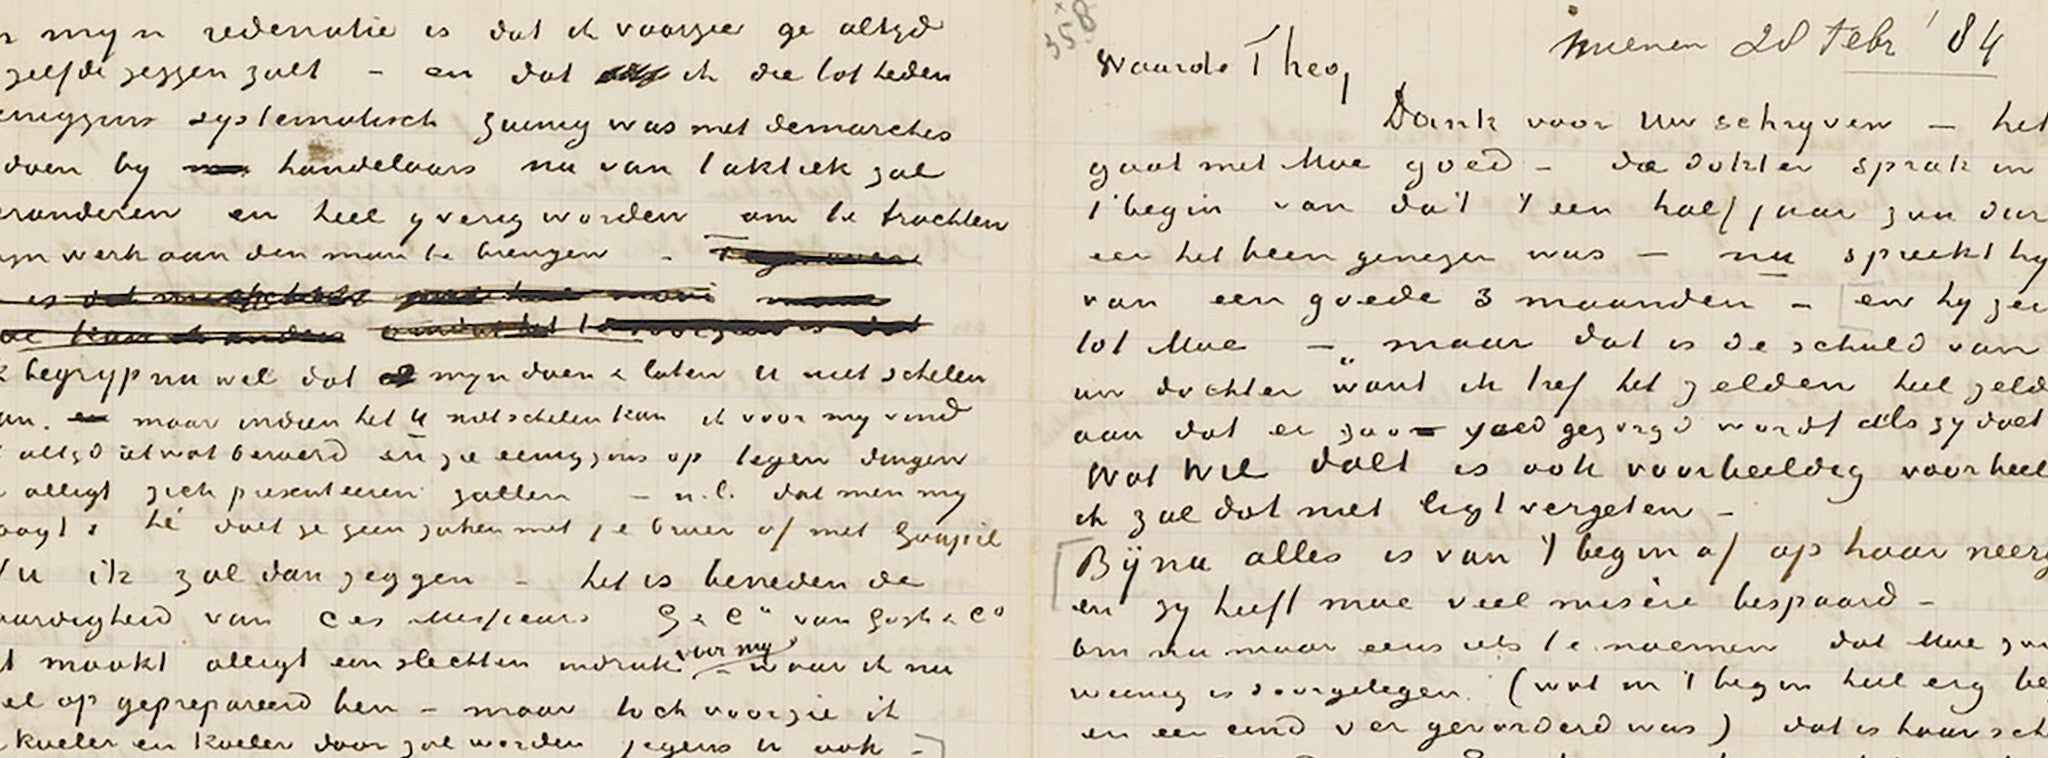 myn redenatie is dat ik voorzie ge altyd
zelfde zeggen zult – en dat ik die lot heden
eenigzins systematisch zuinig was met demarches
doen by handelaars nu van taktiek zal
veranderen en heel yverig worden om te trachten
myn werk aan den man te brengen –
is dat
kan ik anders omdat het te voorzien is dat
begryp nu wel dat myn doen & laten U niet schelen
kan. maar indien het U niet schelen kan ik voor my vind
altyd ietwat beroerd en zie eenigzins op tegen dingen
alligt zich presenteeren zullen – n.l. dat men my
vraagt: hé doet ge geen zaken met je broer of met Goupil
Nu ik zal dan zeggen – het is beneden de
waardigheid van Ces Messieurs G & Co van Gogh & Co
maakt alligt een slechten indruk voor my – waar ik nu
wel op geprepareerd ben – maar toch voorzie ik
koeler en koeler door zal worden jegens U ook –
358
Nuenen 20 Febr '84
Waarde Theo,
Dank voor Uw schryven – het
gaat met Moe goed – de dokter sprak in
't begin van dat 't een half jaar zou dur
eer het been genezen was – nu spreekt hy
van een goede 3 maanden – en hy zei
tot Moe – „maar dat is de schuld van
uw dochter want ik tref het zelden heel zeld
aan dat er zoo goed gezorgd wordt als zy doet
Wat Wil doet is ook voorbeeldig voorbeel
ik zal dat niet ligt vergeten –
Bijna alles is van 't begin af op haar neerg
en zy heeft moe veel misère bespaard –
Om nu maar eens iets te noemen dat Moe zoo
weinig is doorgelegen (wat in 't begin heel erg be
en een eind ver gevorderd was) dat is haar sch